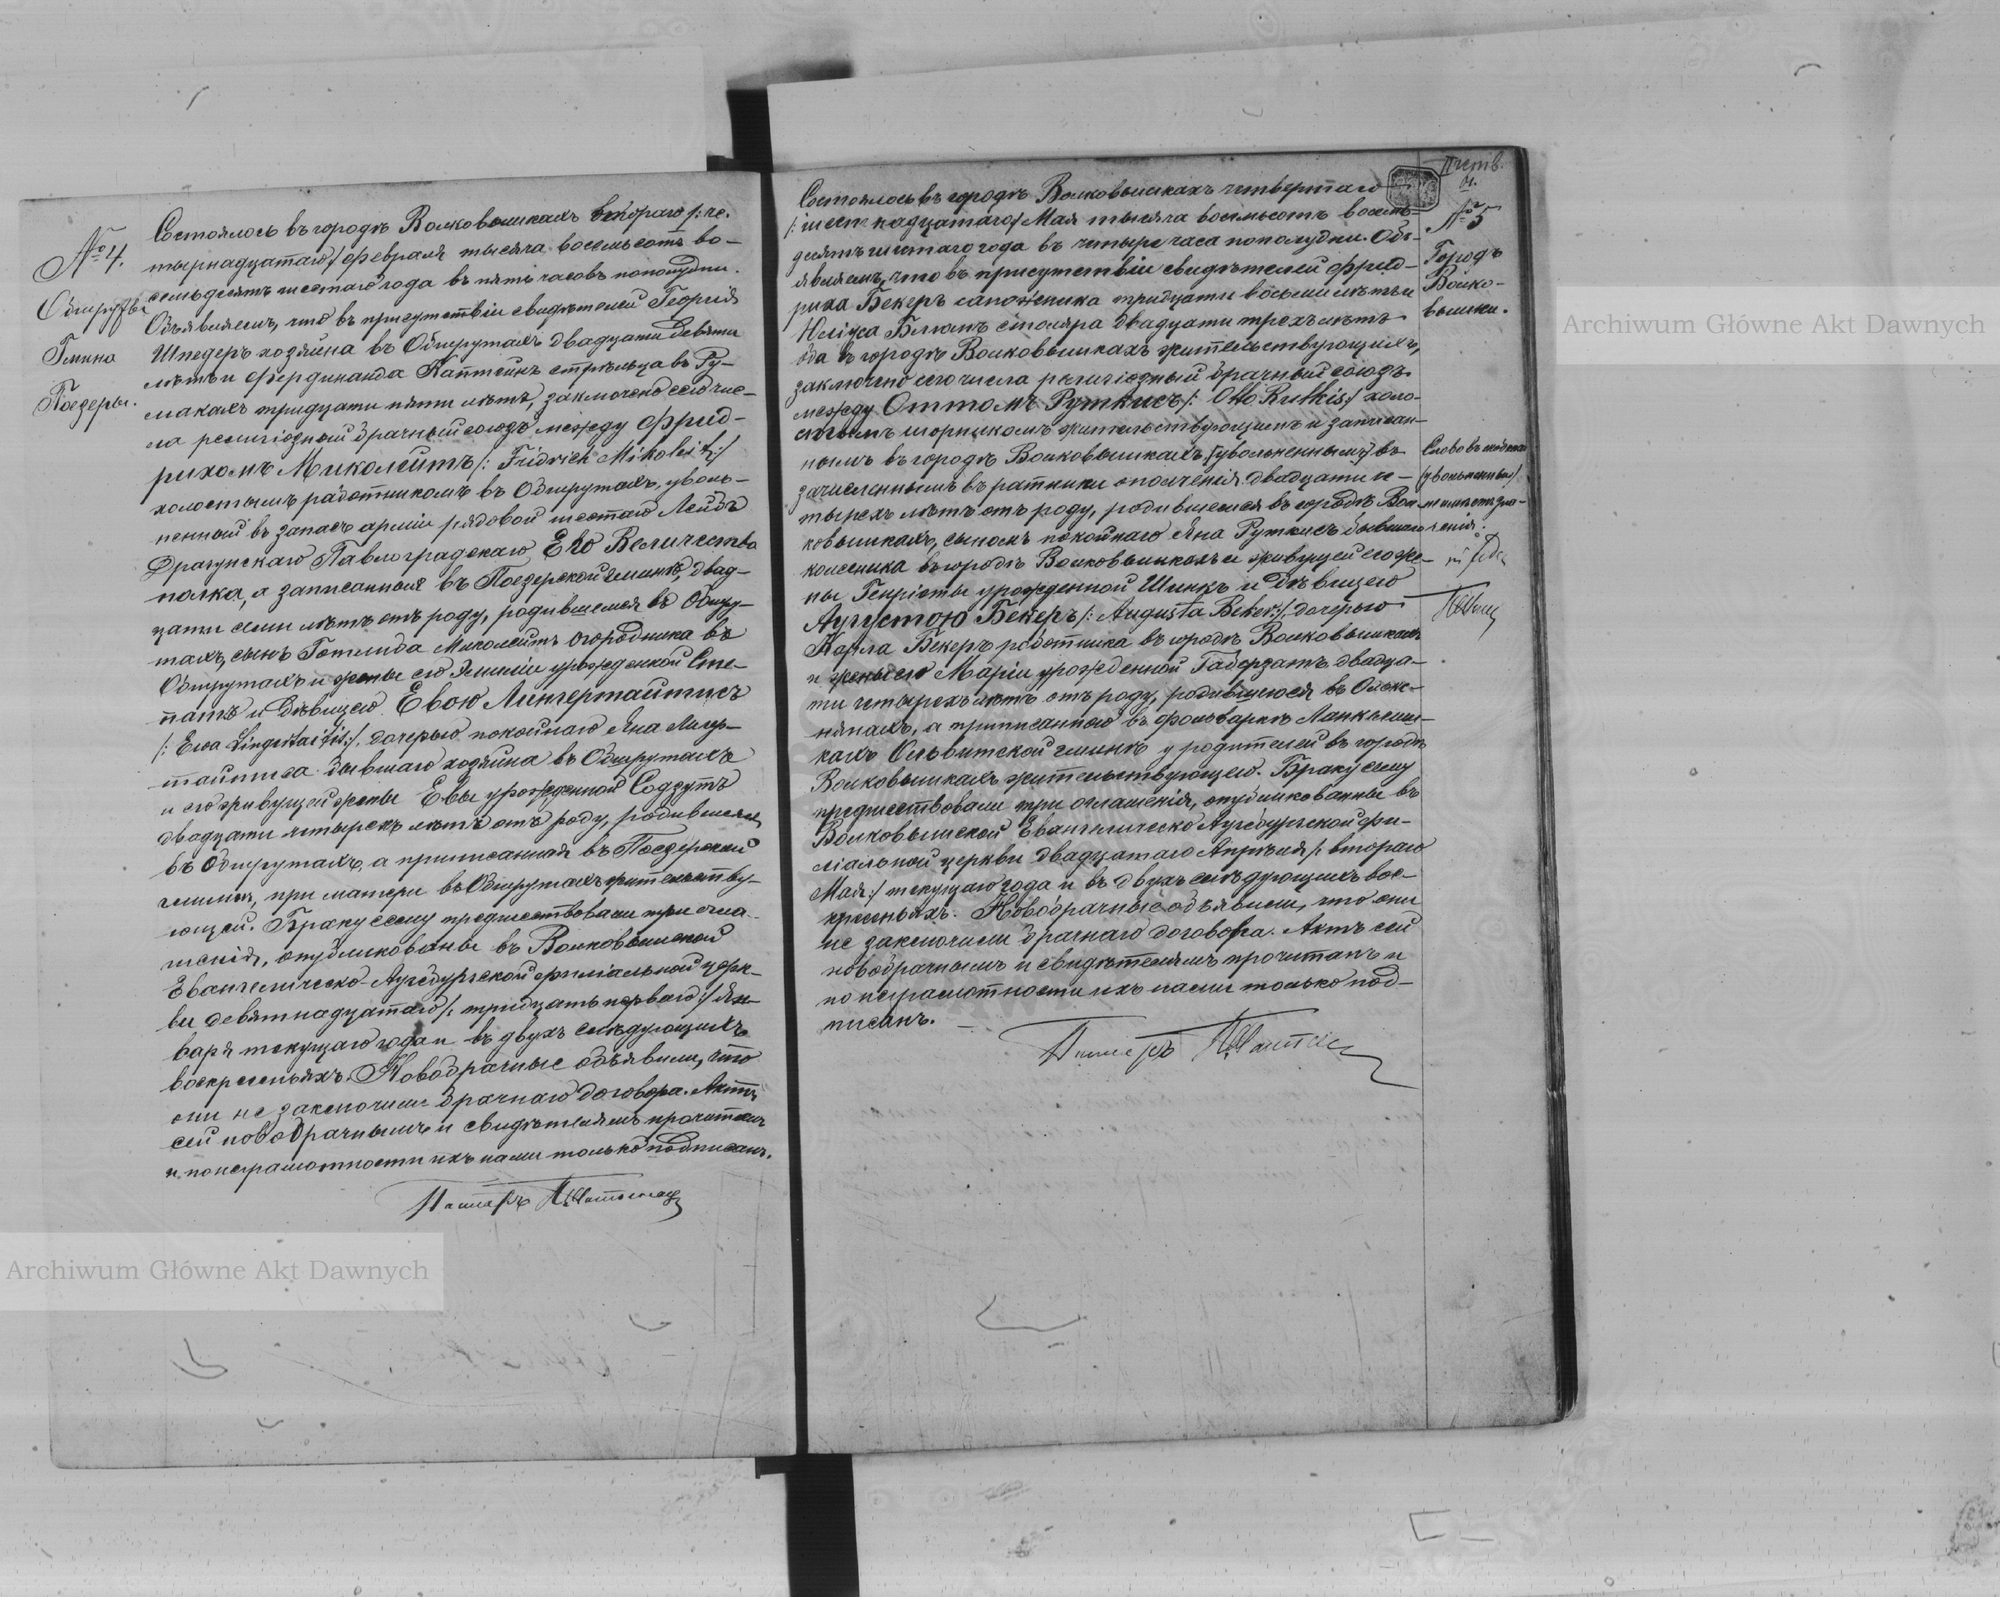 № 4.
Обшруты
Гмина
Поезеры.
Состоялось въ городѣ Волковышкахъ втораго /: че-
тырнадцатаго :/ февраля тысяча восемьсотъ во-
семьдесятъ шестаго года въ пять часовъ пополудни.
Объявляемъ, что въ присутствіи свидѣтелей Георгія
Шнедеръ хозяина въ Обшрутахъ двадцати девяти
лѣтъ и Фердинанда Каптейнъ стрѣльца въ Ру-
макахъ тридцати пяти лѣтъ, заключенъ сего чис-
ла религіозный брачный союзъ между Фрид-
рихомъ Миколейтъ /: Fridrich Mikoleit :/
холостымъ работникомъ въ Обшрутахъ, уволь-
ненный въ запасъ арміи рядовой шестаго Лейбъ
Драгунскаго Павлоградскаго Его Величества
полка, а записанныя въ Поезерской гминѣ, двад-
цати семи лѣтъ отъ роду, родившемся въ Обшру-
тахъ, сынъ Готлиба Миколейтъ огородника въ
Обшрутахъ и жены его Эмиліи урожденной Сте-
патъ и дѣвицею Евою Лингертайтисъ
/: Ewa Lingertaitis :/, дочерью покойнаго Яна Лигер-
тайтиса бывшаго хозяина въ Обшрутахъ
и его живущей жены Евы урожденной Содзутъ
двадцати четырехъ лѣтъ отъ роду, родившеяся
въ Обшрутахъ, а приписанная въ Поезерской
гминѣ, при матери въ Обшрутахъ жительству-
ющей. Браку сему предшествовали три огла-
шенія, опубликованы въ Волковышской
Евангелическо-Аугсбургской филіальной церк-
ви девятнадцатаго /: тридцать перваго :/ Ян-
варя текущаго года и въ двухъ слѣдующихъ
воскресеньяхъ. Новобрачные объявили, что
они не заключили брачнаго договора. Актъ
сей новобрачнымъ и свидѣтелямъ прочитанъ
и по неграмотности ихъ нами только подписанъ.
Пасторъ
Состоялось въ городѣ Волковышкахъ четвертаго
/: шестнадцатаго :/ Мая тысяча восемьсотъ восемь-
десятъ шестаго года въ четыре часа пополудни. Объ-
являемъ, что въ присутствіи свидѣтелей Фрид-
риха Бекеръ сапожника тридцати восьми лѣтъ и
Юліуса Блюмъ столяра двадцати трехъ лѣтъ
оба въ городѣ Волковышкахъ жительствующихъ,
заключено сего числа религіозный брачный союзъ
между Оттомъ Руткисъ /: Otto Rutkis :/ холо-
стымъ шорникомъ жительствующимъ и записан-
нымъ въ городѣ Волковышкахъ, (увольненнымъ) въ
зачисленнымъ въ ратники ополченія двадцати че-
тырехъ лѣтъ отъ роду, родившемся въ городѣ Вол-
ковышкахъ, сыномъ покойнаго Яна Руткисъ бывшаго
колесника въ городѣ Волковышкахъ и живущей его же-
ны Генріоты урожденной Шинкъ и дѣвицею
Аугустою Бекеръ /: Augusta Beker :/, дочерью
Карла Бекеръ работника въ городѣ Волковышкахъ
и жены его Маріи урожденной Габерзатъ двадца-
ти четырехъ лѣтъ отъ роду, родившеюся въ Олекс-
нянахъ, а приписанною въ фольваркѣ Ланкелиш-
кахъ Ольвитской гминѣ у родителей въ городѣ
Волковышкахъ жительствующею. Браку сему
предшествовали три оглашенія, опубликованны въ
Волковышской Евангелическо Аугсбургской фи-
ліальной церкви двадцатаго Апрѣля /: втораго
Мая :/ текущаго года и въ двухъ слѣдующихъ вос-
кресеньяхъ. Новобрачные объявили, что они
не заключили брачнаго договора. Актъ сей
новобрачнымъ и свидѣтелямъ прочитанъ и
по неграмотности ихъ нами только под-
писанъ.
Пасторъ
№ 5
Городъ
Волко-
вышки.
Слово въ скобкахъ
(увольненнымъ)
не имѣетъ зна-
ченія.
Archiwum Główne Akt Dawnych
Archiwum Główne Akt Dawnych